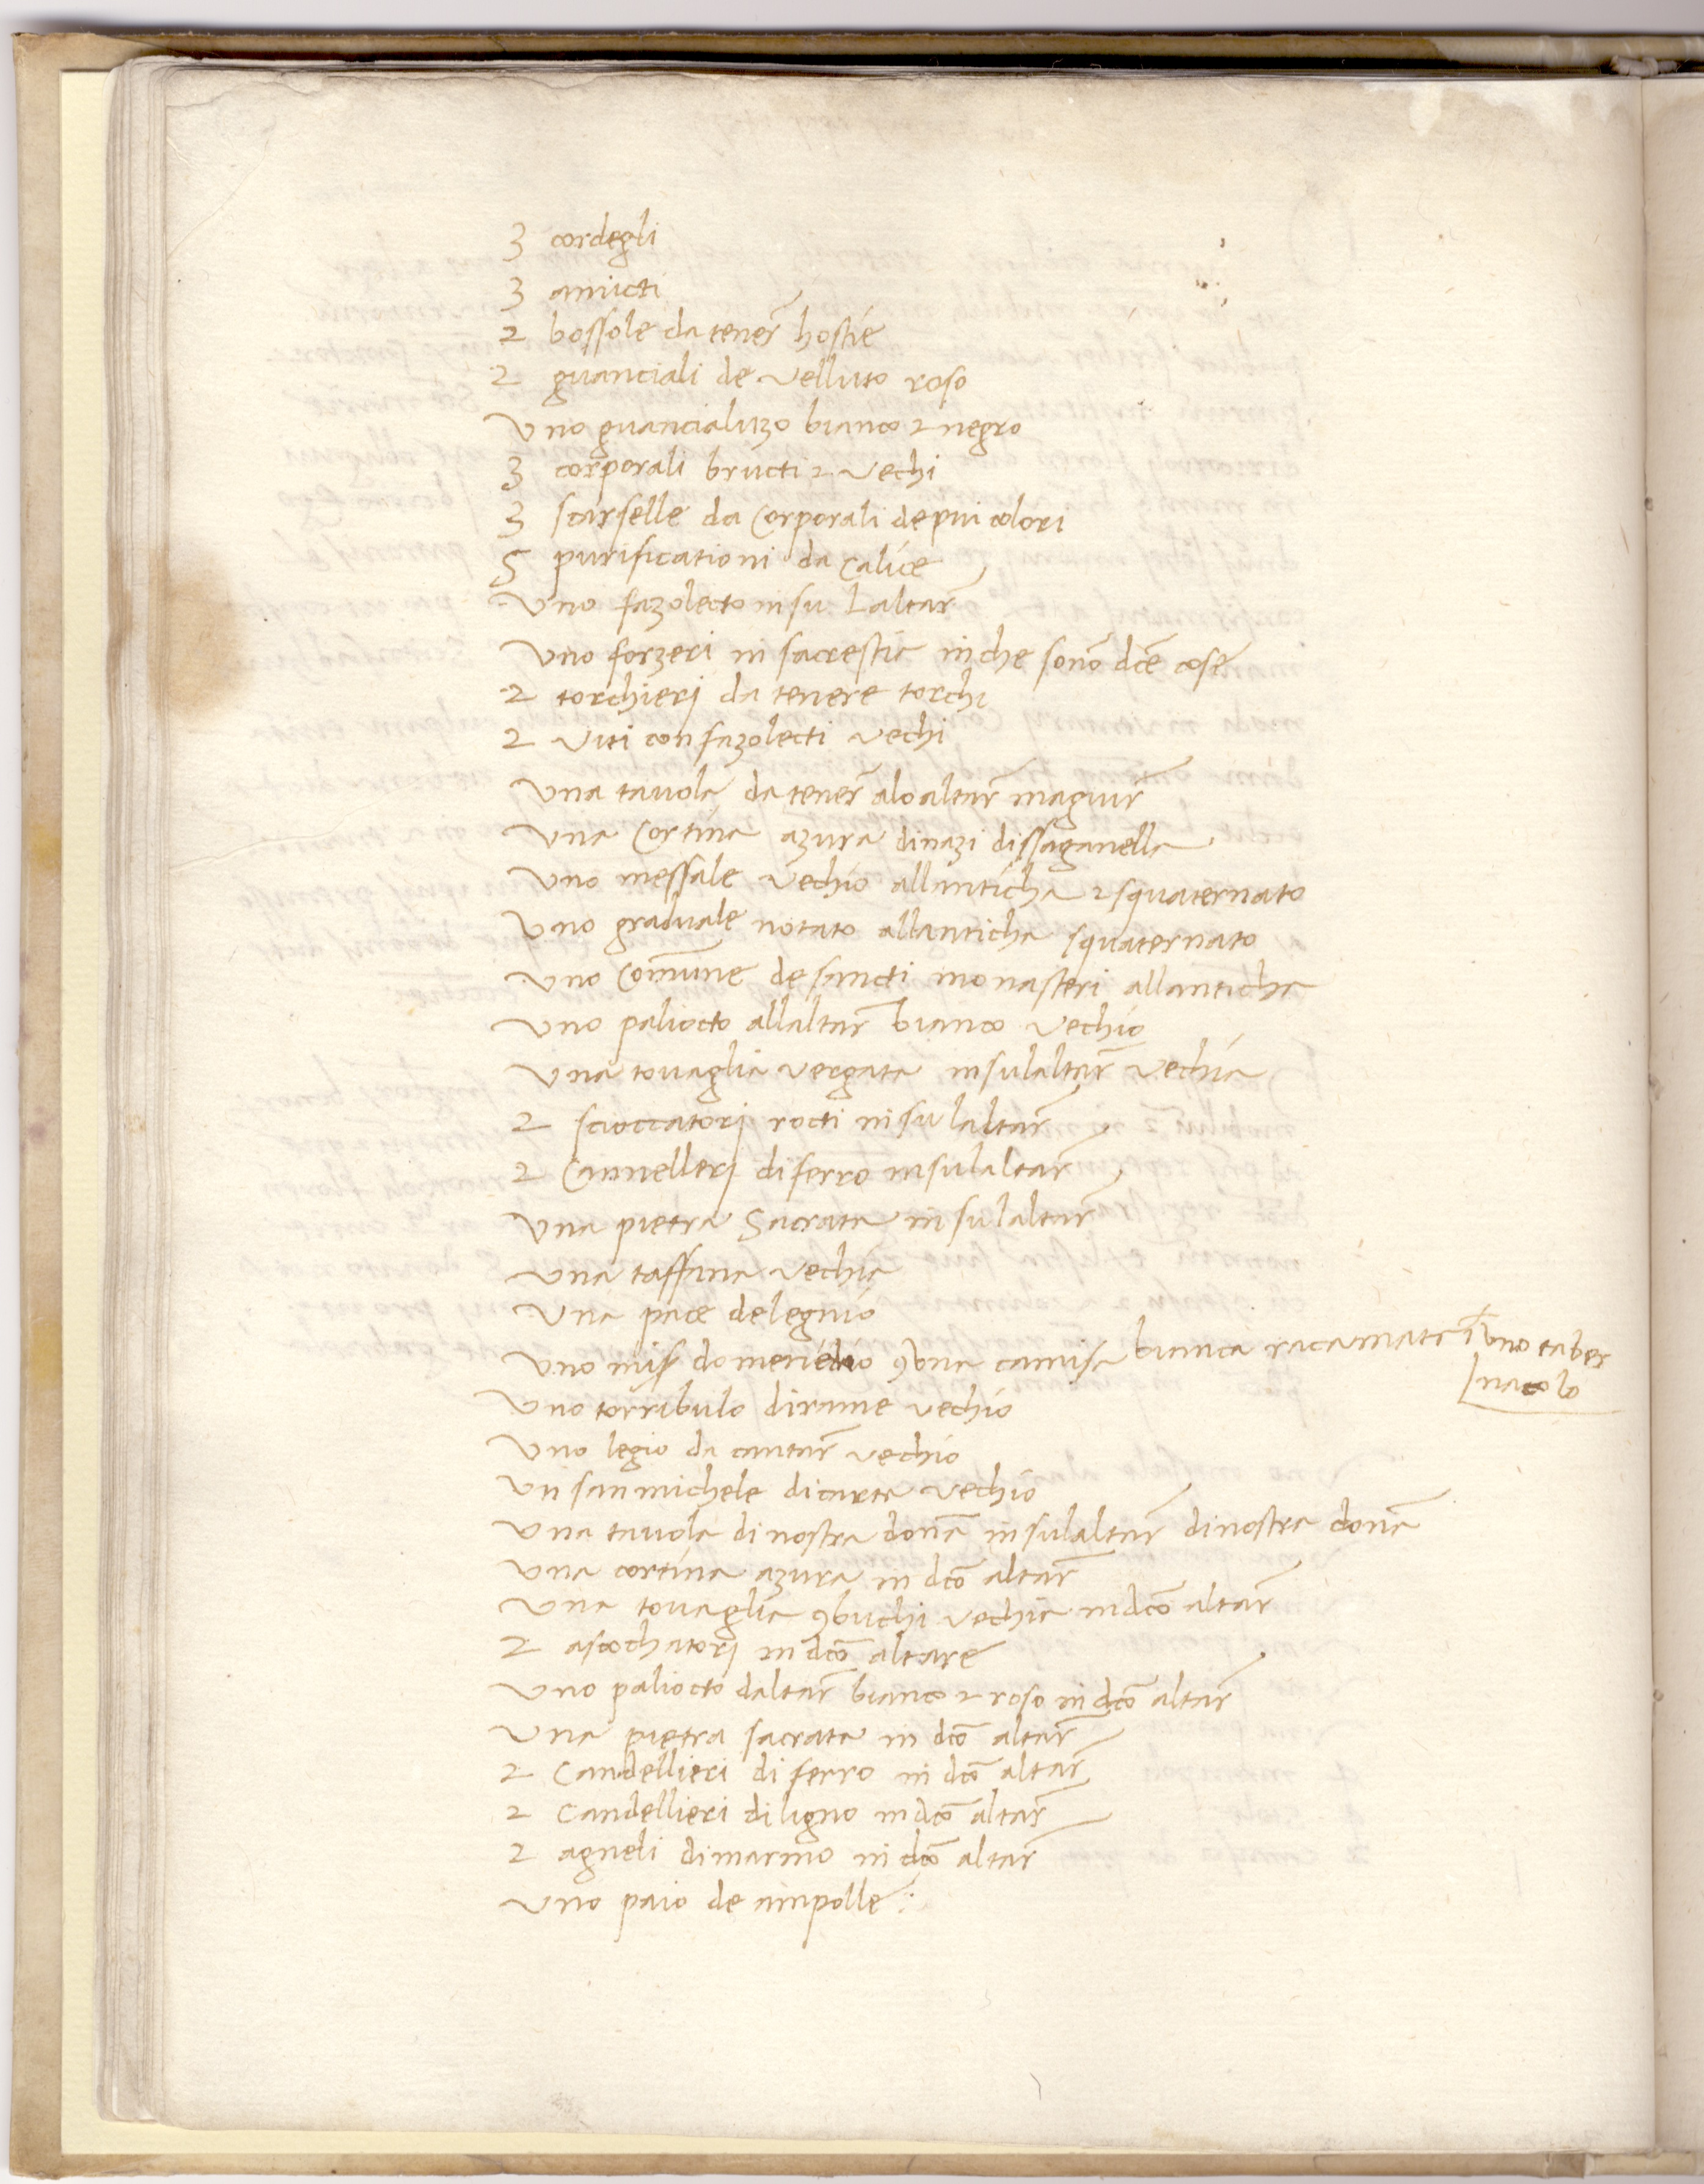 3 cordegli
3 amicti
2 bossole da tener̃ hostie
2 guanciali de velluto roso
Uno guancialuzo bianco ⁊ negro
3 corporali bructi ⁊ vechi
3 scarselle da Corporali de piu colori
5 purificationi da Calice
Uno fazolecto in su laltar̃
Uno forzeri in sacrestia in che sono dc̃e cose
2 torchieri da tenere torchi
2 Viti con fazolecti vechi
Una tauola da tener̃ alo altar̃ magiur̃
Una Cortina azura dinazi dissaganella
Uno messale vechio allanticha ⁊ squaternato
Uno graduale notato allanticha squaternato
Uno Comune de sancti monasteri allanticha
Uno paliocto allaltar̃ bianco vechio
Una touaglia vergata in sulaltar̃ vechia
2 scioccatori rocti in su laltar̃
2 Cannelleri di ferro in sulaltar̃
Una pietra Sacrata in sulaltar̃
Una vechia
Una pace de legnio
Uno domenedio ꝯ una camisa bianca racamata ⁊ i uno taber
nacolo
Uno torribulo di rame vechio
Uno legio da cantar̃ vechio
Un san michele di carta vechio
Una tauola di nostra dona in sulaltar̃ di nostra dona
Una cortina azura in dc̃o altar̃
Una touaglia ꝯ buchi vechia in dc̃o altar̃
2 asochatori in dc̃o altare
Uno paliocto daltar̃ bianco ⁊ roso in dc̃o altar̃
Una pietra sacrata in dc̃o altar̃
2 Candellieri di ferro in dc̃o altar̃
2 Candellieri di ligno in dc̃o altar̃
2 agneli di marmo in dc̃o altar̃
Uno paio de ampolle